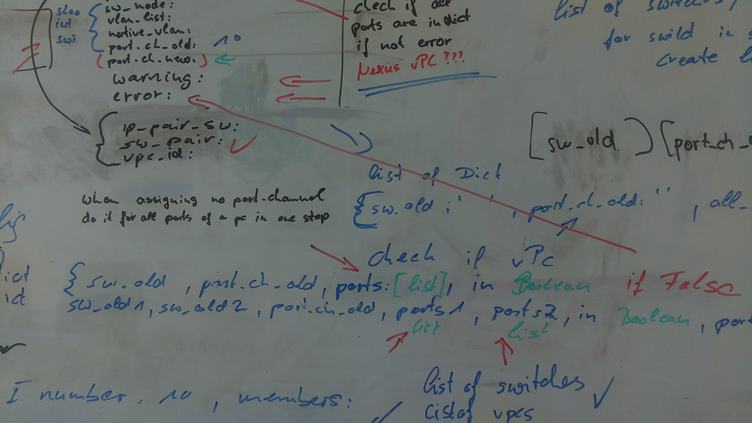 sw_node:
vlan_list:
native_vlan:
port_ch_old: 10
(port_ch_new:
warning:
error:
ip_pair_sw:
sw_pair:
vpc_id:
check if all
ports are in dict
if not error
Nexus vPC ???
list of switches,
for swild in s
create l
[sw_old) [port_ch_o
list of Dict
{sw_old: ' ', port_ch_old: ' ', all_
When assigning no port-channel
do it for all ports of a pc in one step
check if vPc
ict
ict
{sw_old, port_ch_old, ports: [list], in Boolean if False
sw_old1, sw_old2, port_ch_old, ports1, ports2, in Boolean, port
list list
I number, 10, members:
list of switches
List of vpcs